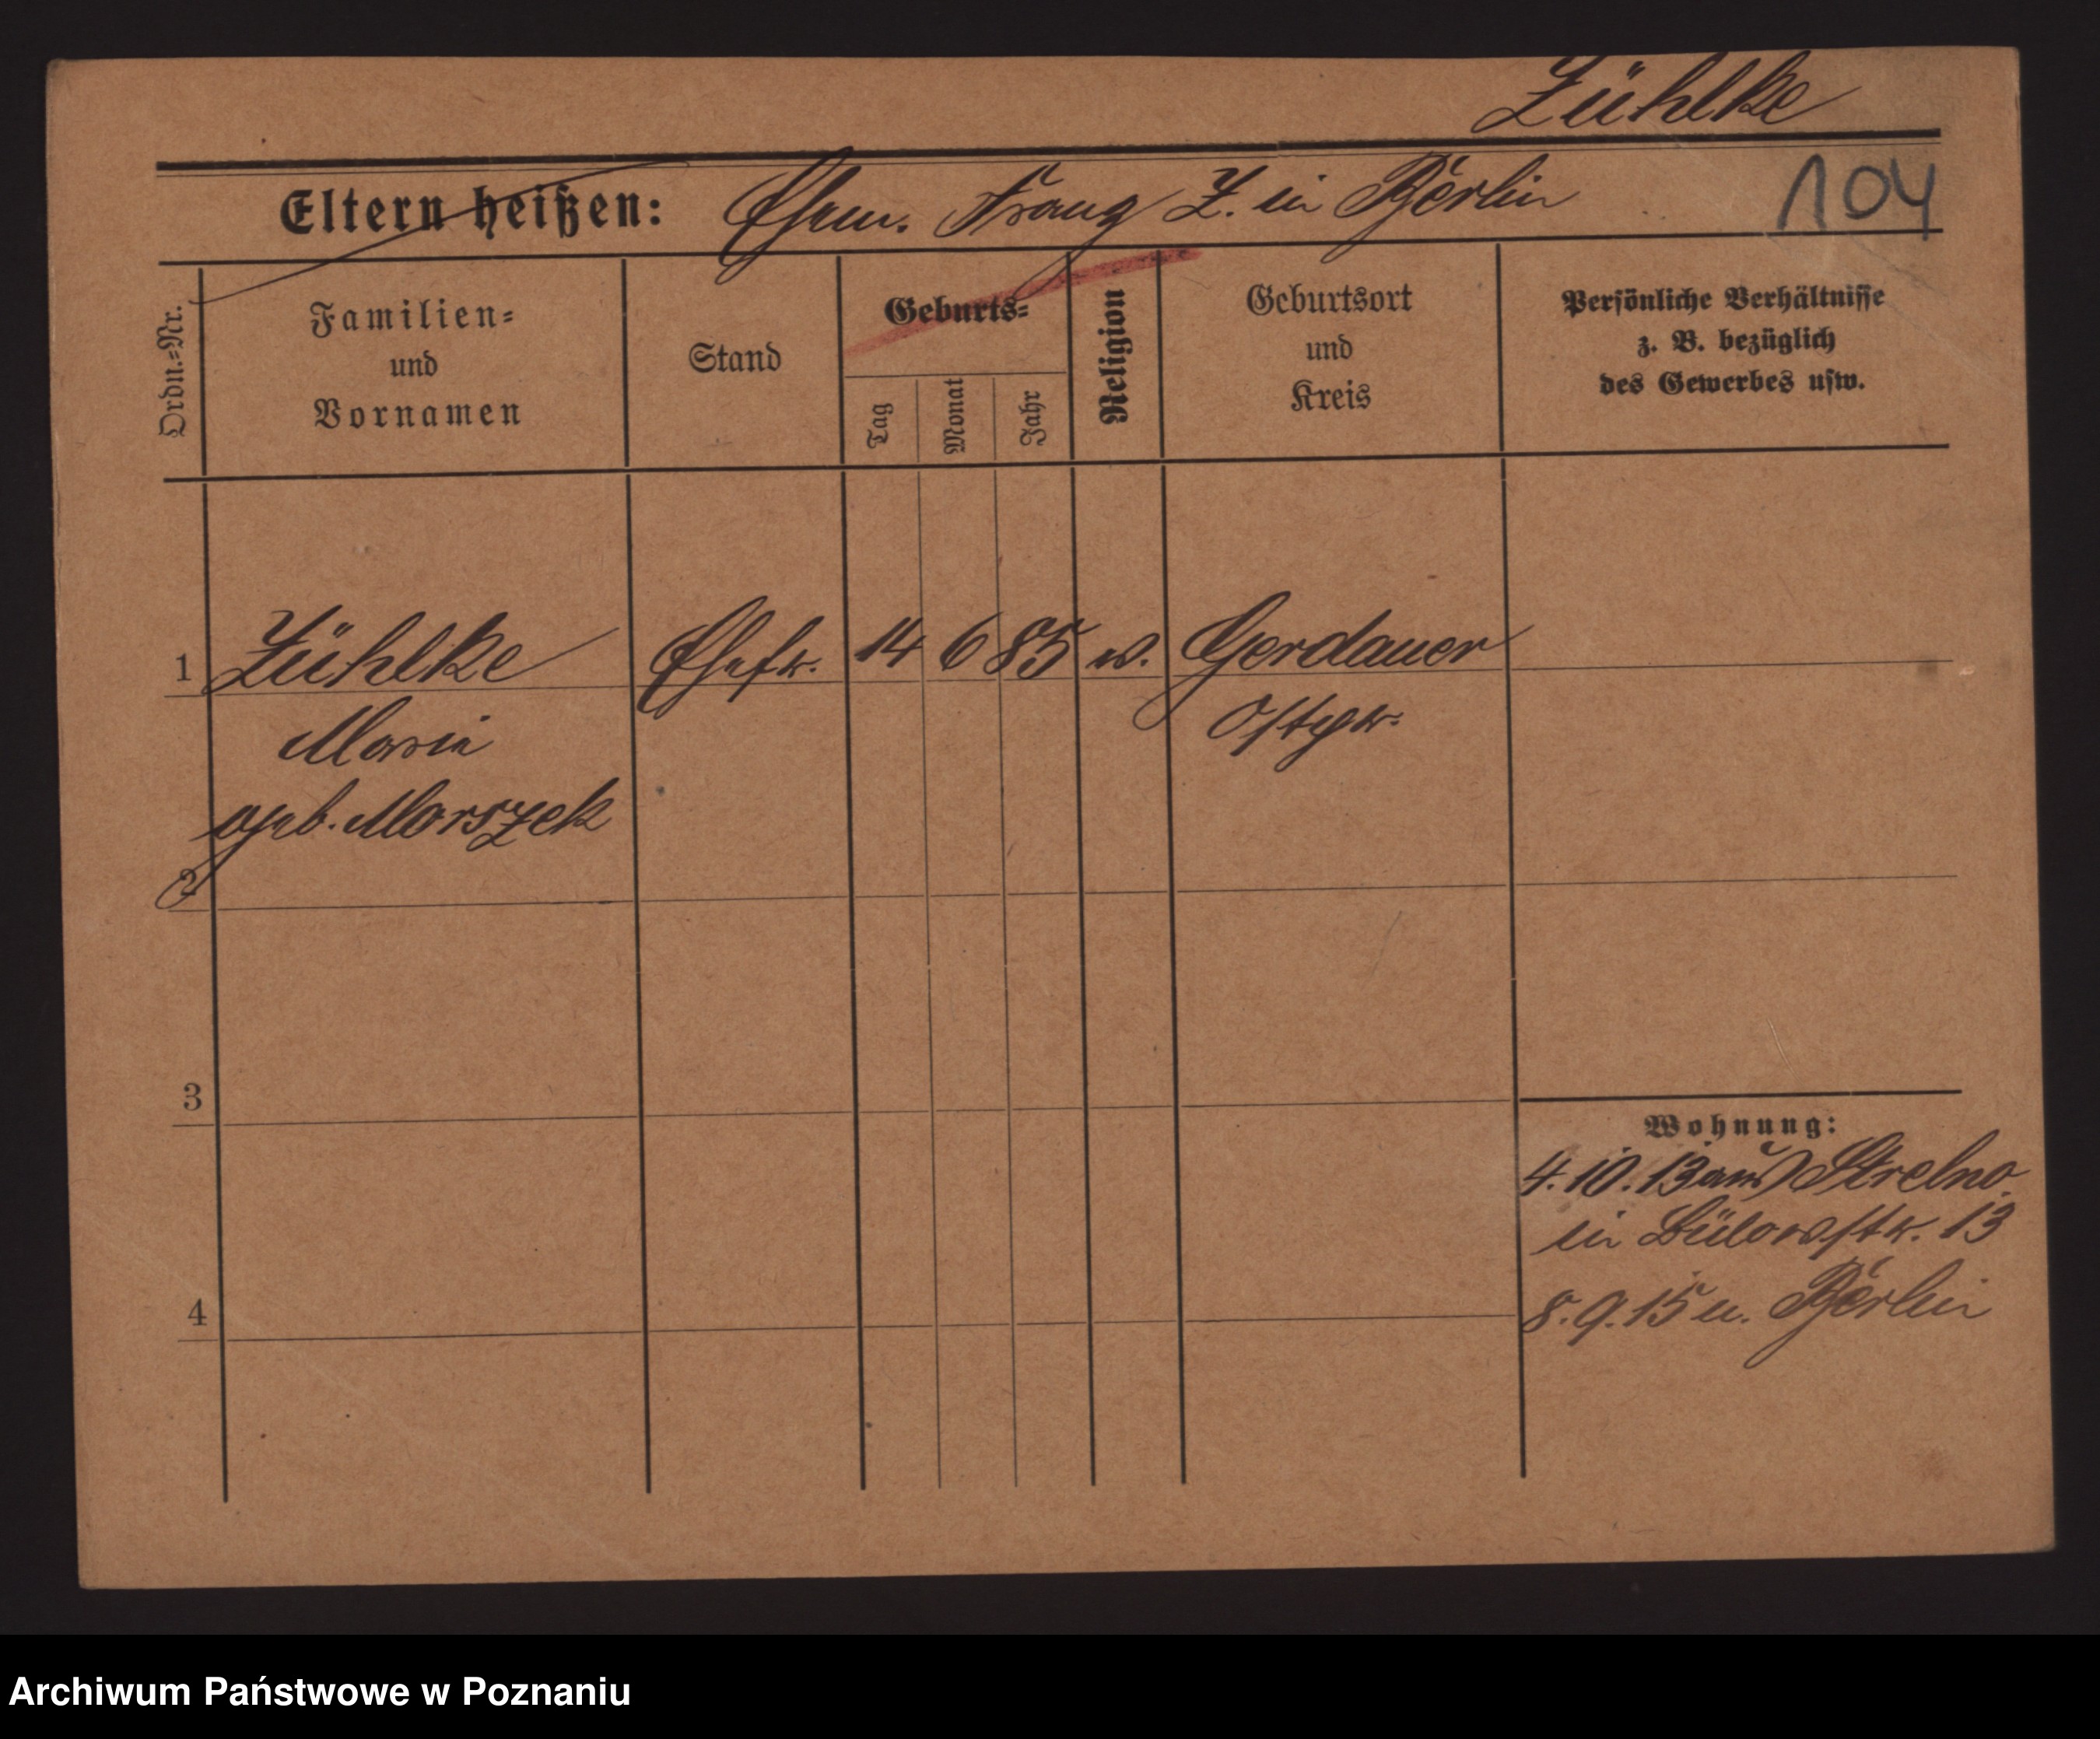 Zühlke
Eltern heißen: Ehem. Franz Z. in Berlin
104
Ordn.=Nr.
Familien=
und
Vornamen
Stand
Geburts=
Tag
Monat
Jahr
Religion
Geburtsort
und
Kreis
Persönliche Verhältnisse
z. B. bezüglich
des Gewerbes usw.
1 Zühlke Ehefr. 14 6 85 ev. Gerdauen
Maria Ostpr.
geb. Morszek
2
3
4
Wohnung:
4.10.13 aus Strelno
in Bülowstr. 13
8.9.15 n. Berlin
Archiwum Państwowe w Poznaniu